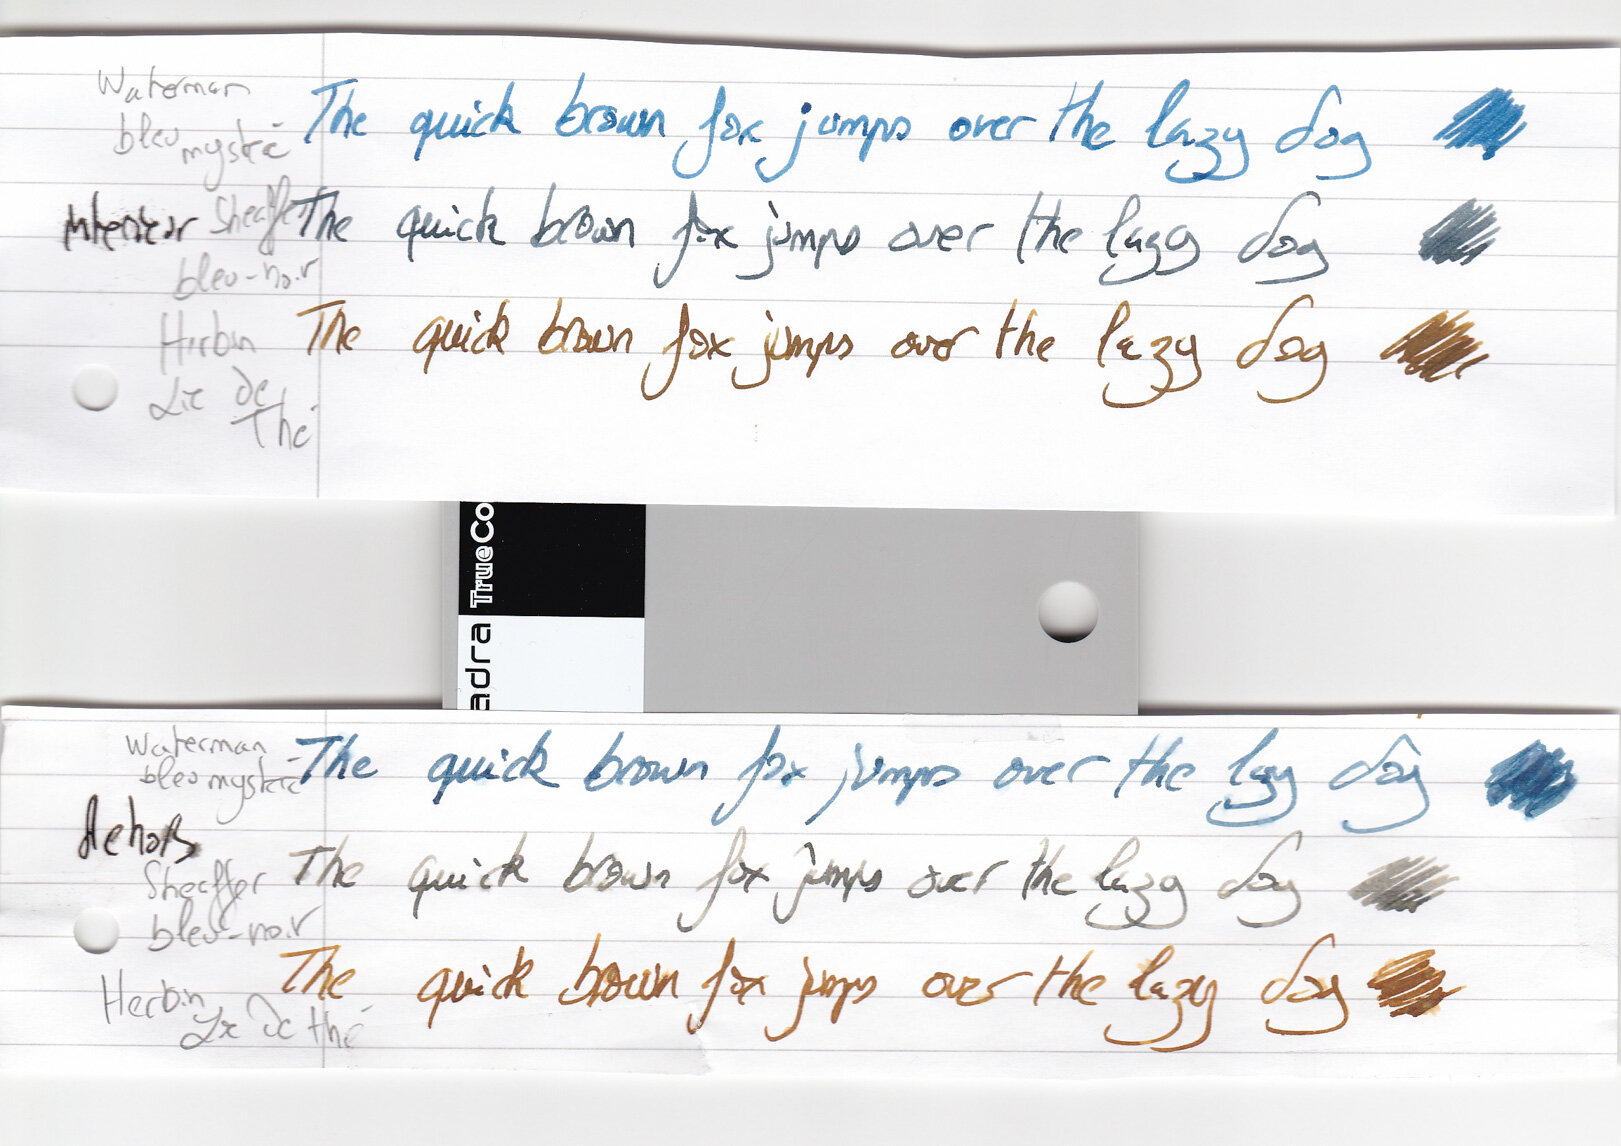 Waterman
bleu mystère
The quick brown fox jumps over the lazy dog
Intérieur
Sheaffer
bleu-noir
The quick brown fox jumps over the lazy dog
Herbin
Lie de
Thé
The quick brown fox jumps over the lazy dog
adra TrueCo
Waterman
bleu mystère
The quick brown fox jumps over the lazy dog
dehors
Sheaffer
bleu-noir
The quick brown fox jumps over the lazy dog
Herbin
Lie de thé
The quick brown fox jumps over the lazy dog